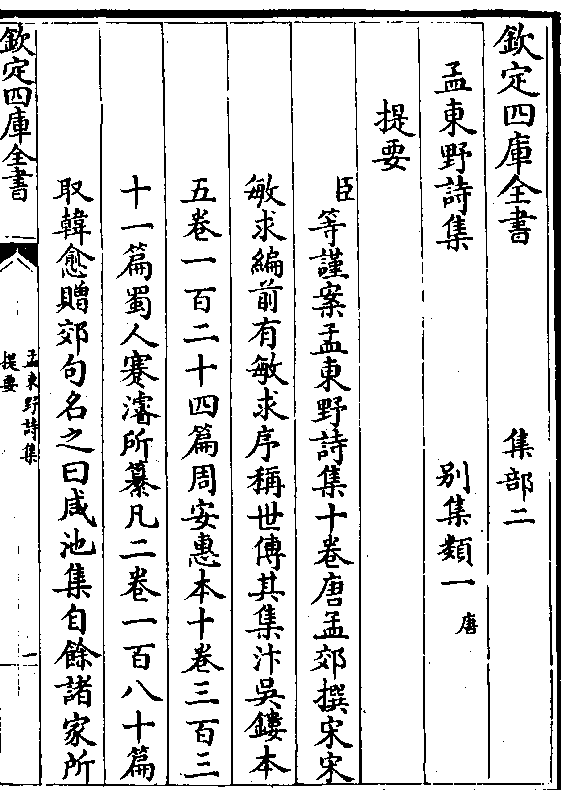 欽定四庫全書 集部二
孟東野詩集 別集類一 唐
提要
臣等謹案孟東野詩集十卷唐孟郊撰宋宋
敏求編前有敏求序稱世傳其集汴吳鏤本
五卷一百二十四篇周安惠本十卷三百三
十一篇蜀人蹇濬所纂凡二卷一百八十篇
取韓愈贈郊句名之曰咸池集自餘諸家所
欽定四庫全書
孟東野詩集
提要
一